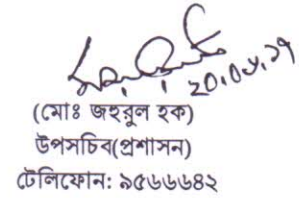 ২০.০৮.১৭
(মোঃ জহুরুল হক)
উপসচিব(প্রশাসন)
টেলিফোন: ৯৫৬৬৬৪২